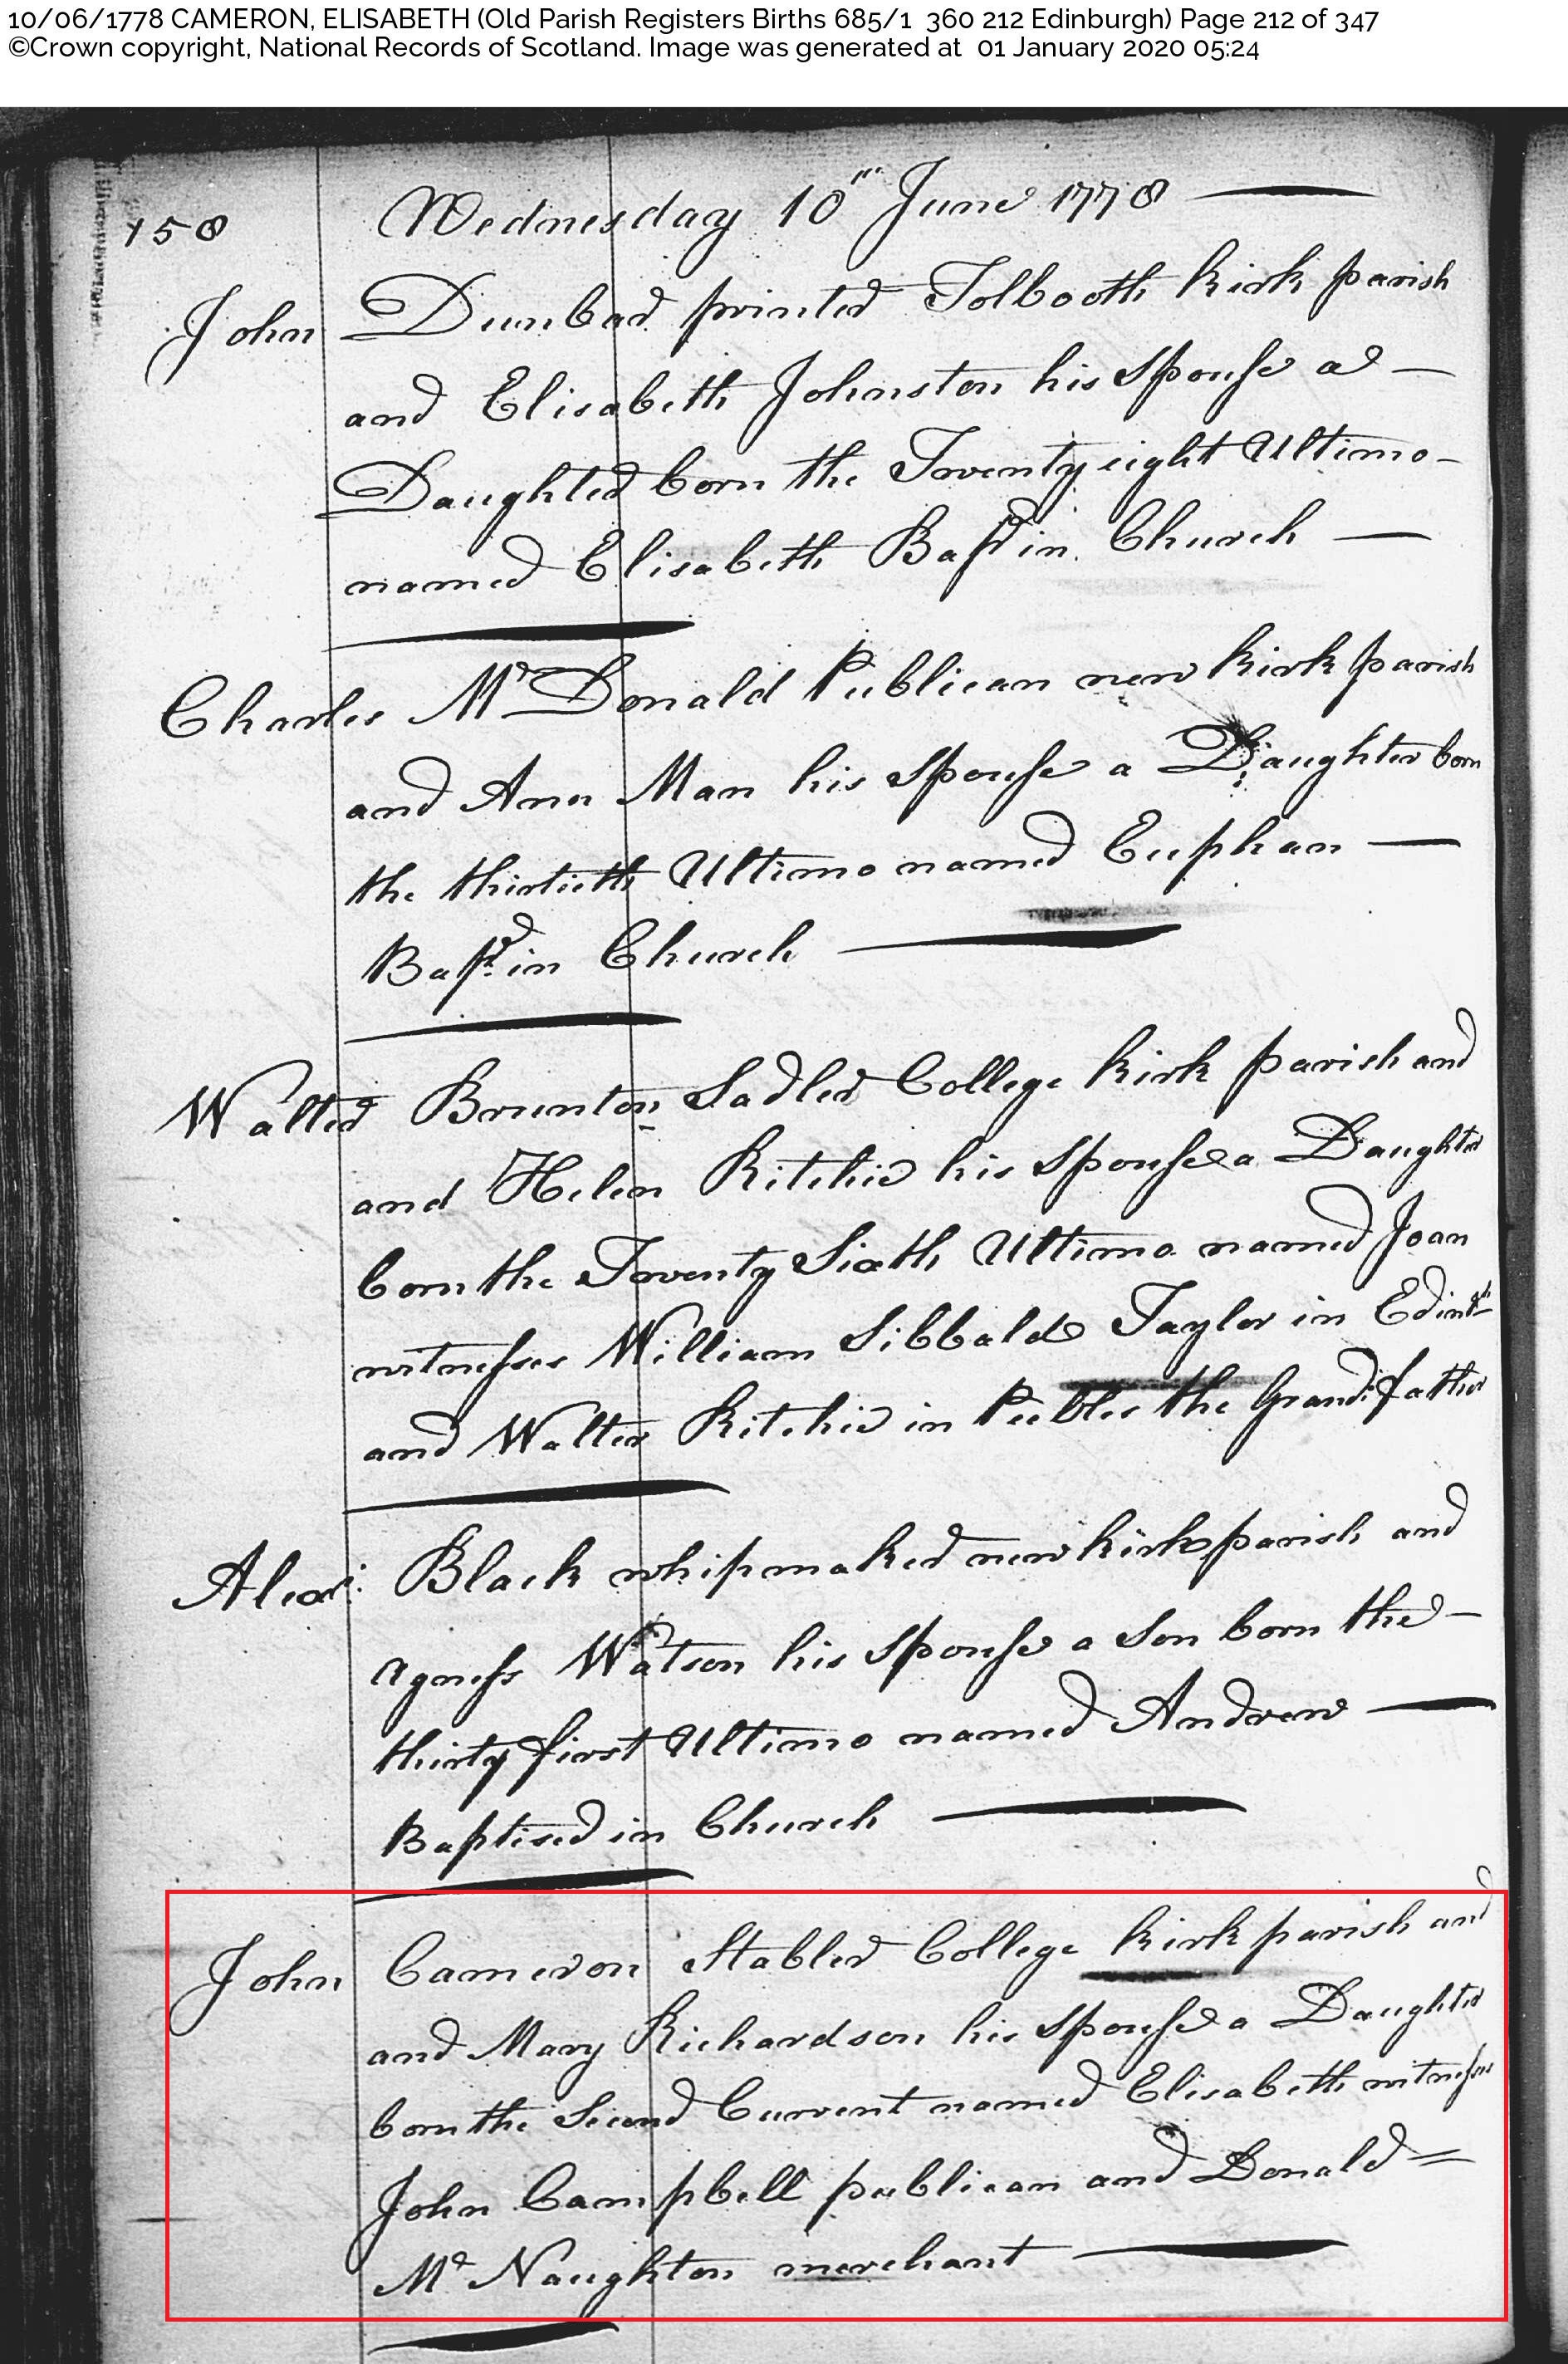 10/06/1778 CAMERON, ELISABETH (Old Parish Registers Births 685/1 360 212 Edinburgh) Page 212 of 347
©Crown copyright, National Records of Scotland. Image was generated at 01 January 2020 05:24
158 Wednesday 10th June 1778
John Dunbar printer Tolbooth kirk parish
and Elisabeth Johnston his Spouse a
Daughter born the Twenty eight Ultimo
named Elisabeth Bapd in Church
Charles McDonald Publican new kirk parish
and Ann Man his Spouse a Daughter born
the thirtieth Ultimo named Euphan
Bapd in Church
Walter Brunton Sadler College kirk parish and
and Helen Ritchie his Spouse a Daughter
born the Twenty Sixth Ultimo named Joan
witnesses William Sibbald Taylor in Edinr
and Walter Ritchie in Peebles the Grandfather
Alexr: Black whipmaker new kirk parish and
Agness Watson his Spouse a Son born the
thirty first Ultimo named Andrew
Baptised in Church
John Cameron Stabler College kirk parish and
and Mary Richardson his Spouse a Daughter
born the Second Current named Elisabeth witnesses
John Campbell publican and Donald
Mc Naughton merchant